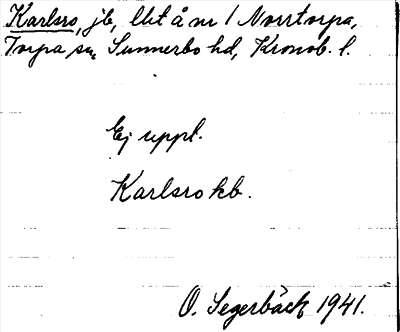 Karlsro, jb, lht å nr 1 Norrtorpa,
Torpa sn, Sunnerbo hd, Kronob. l.
Ej uppl.
Karlsro kb.
O. Segerbäck 1941.